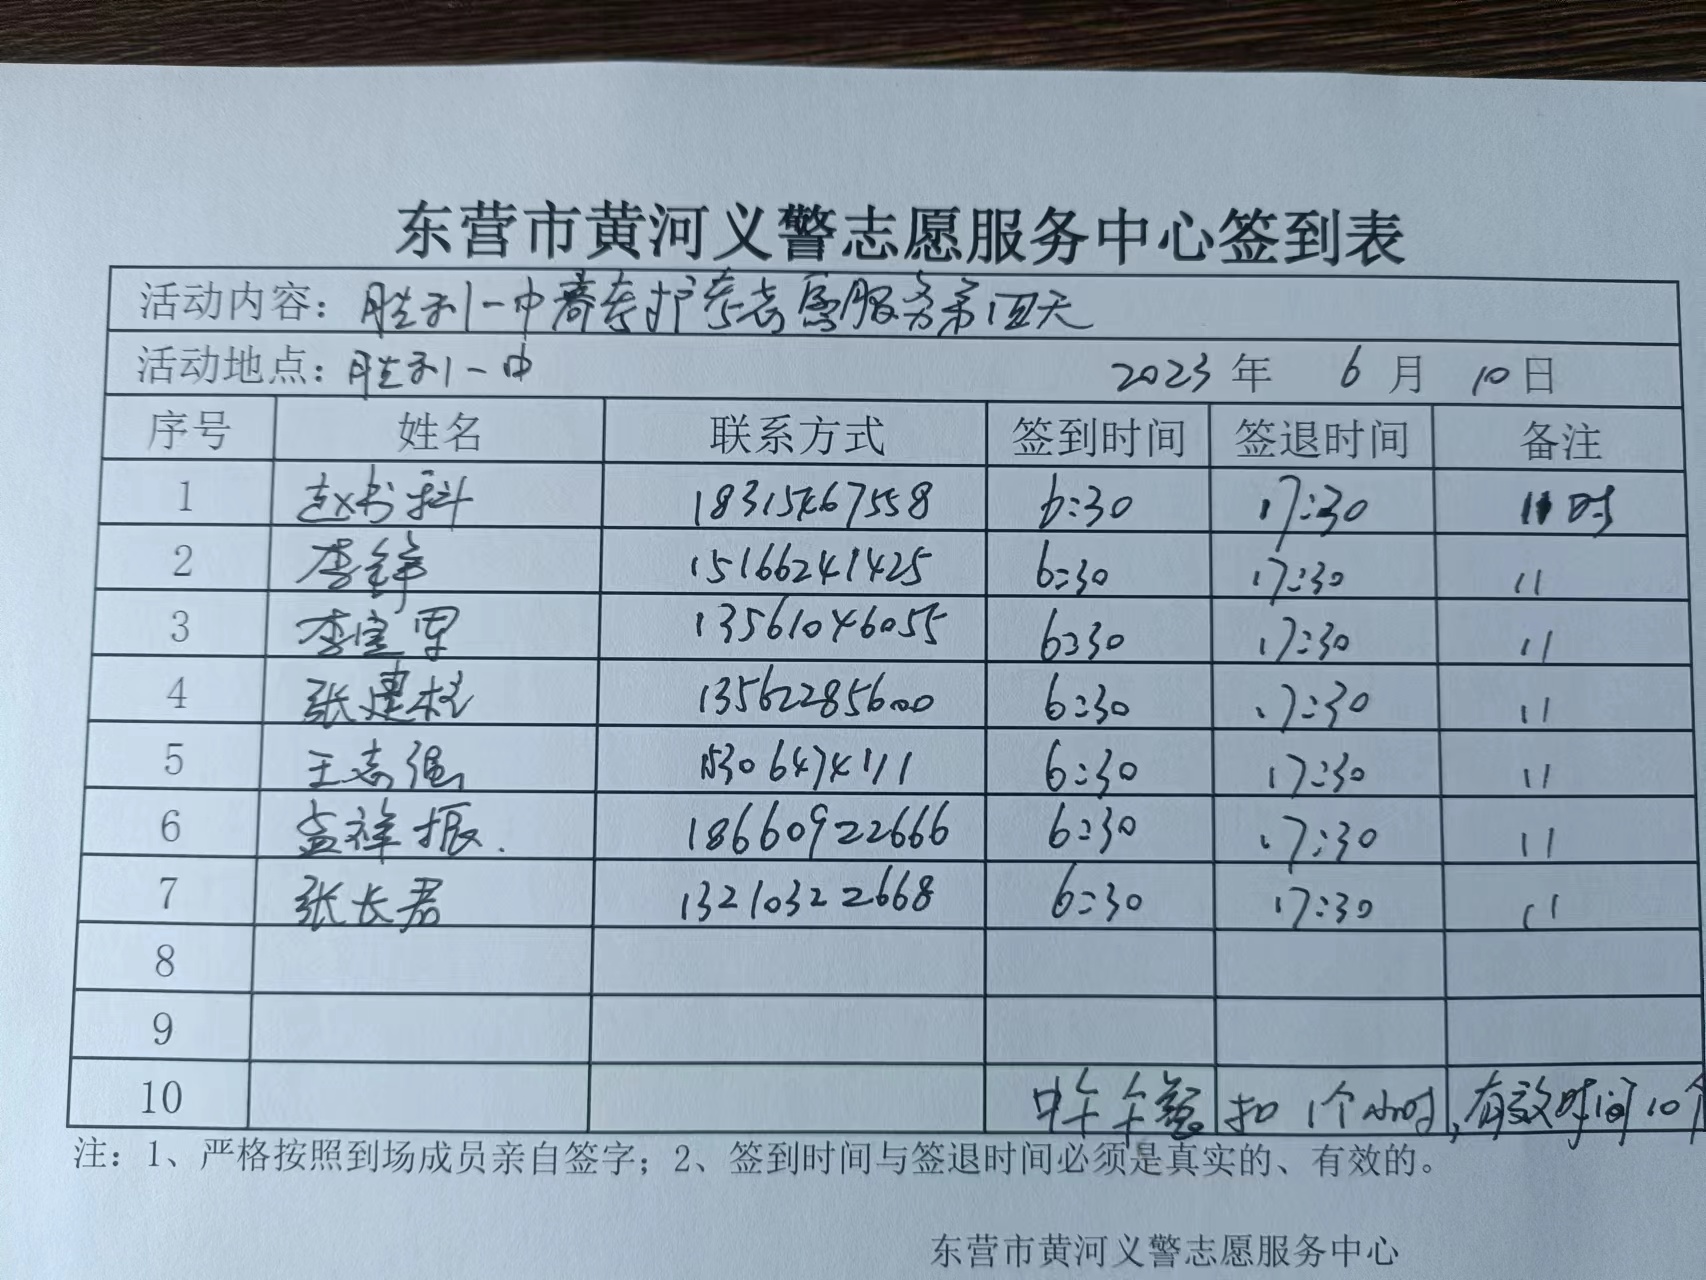 东营市黄河义警志愿服务中心签到表
活动内容：胜利一中春季护考志愿服务第四天
活动地点：胜利一中 2023年 6月 10日
序号 姓名 联系方式 签到时间 签退时间 备注
1 赵书科 18315467558 6:30 17:30 11时
2 李锋 15166241425 6:30 17:30 11
3 李宝军 13561046055 6:30 17:30 11
4 张建校 13562285600 6:30 17:30 11
5 王志强 15306474111 6:30 17:30 11
6 孟祥振. 18660922666 6:30 17:30 11
7 张长君 13210322668 6:30 17:30 11
8
9
10 中午 扣1个小时,有效时间10个
注：1、严格按照到场成员亲自签字；2、签到时间与签退时间必须是真实的、有效的。
东营市黄河义警志愿服务中心